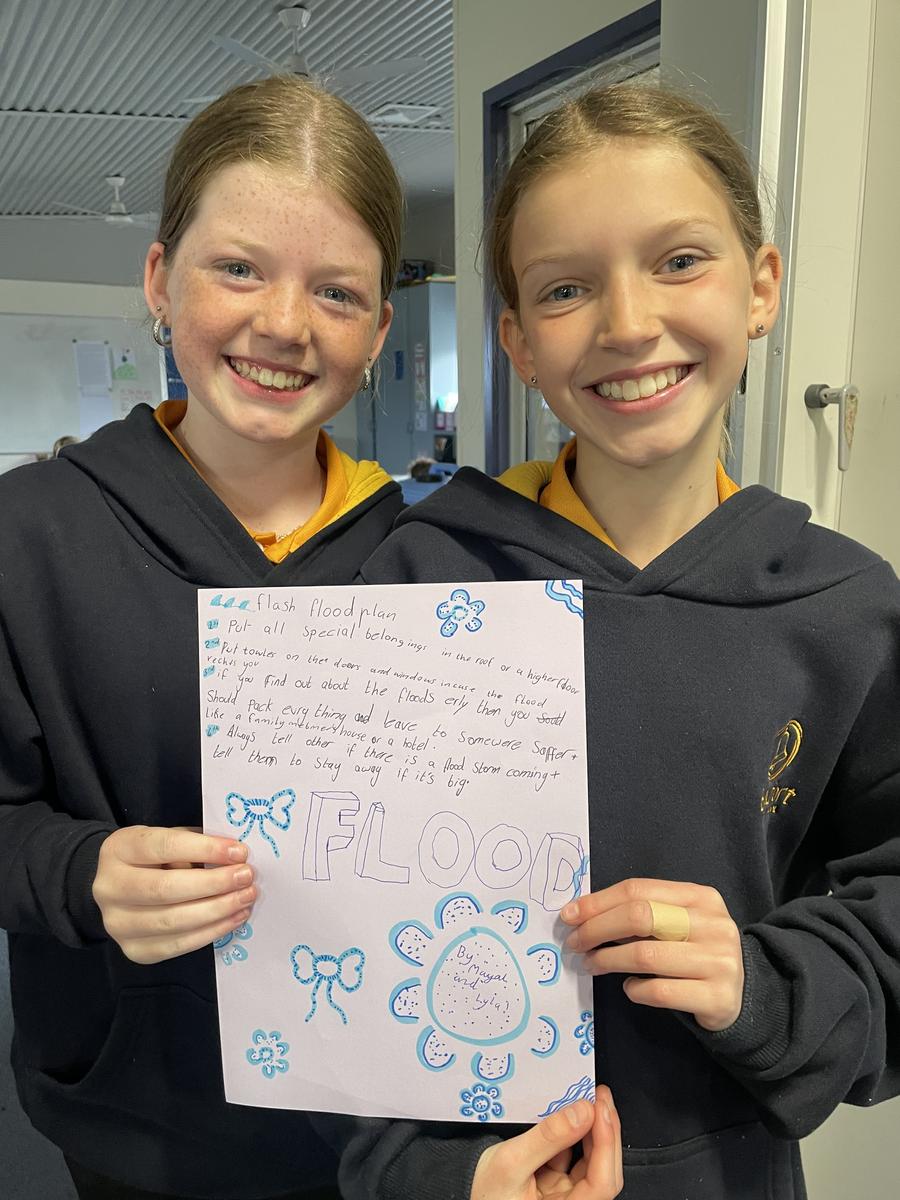 flash flood plan
1st Put all special belongings in the roof or a higher floor
2nd Put towles on thee doors and windows incase the flood
rechas you
3rd if you find out about the floods erly then you
Should pack evry thing and leave to Somewere Saffer +
like a family house or a hotel.
4th Always tell other if there is a flood storm coming +
tell them to stay away if it's big.
FLOOD
By
Maya
and
Lyla